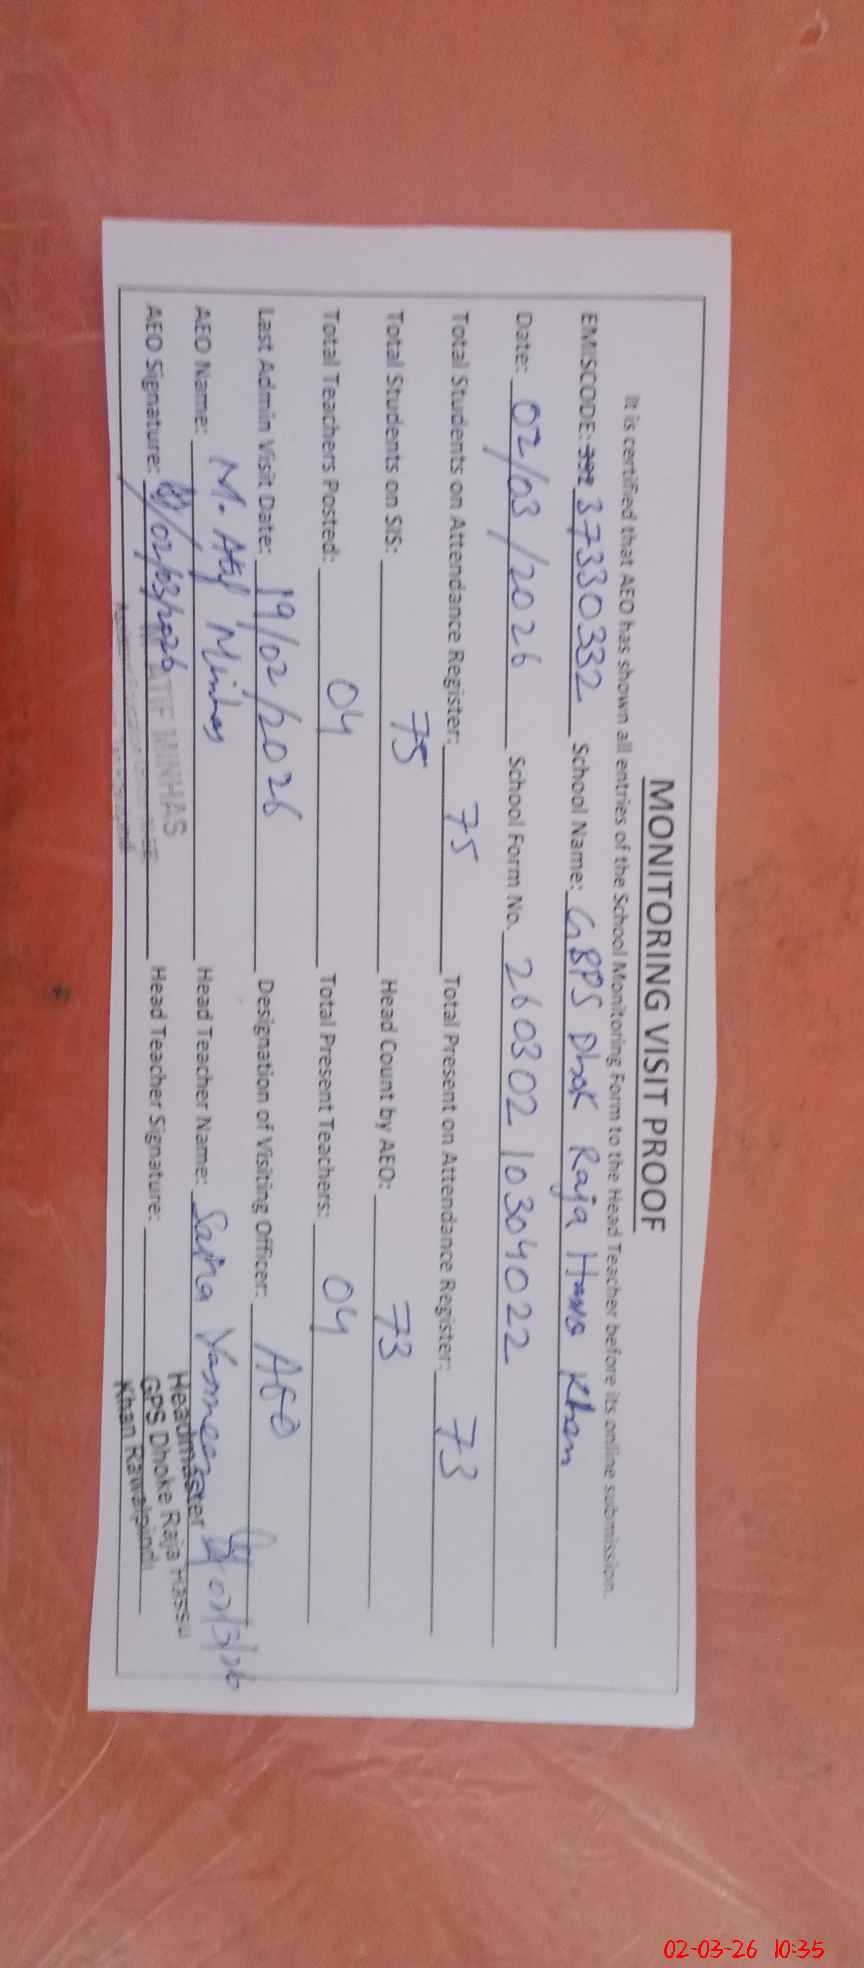 MONITORING VISIT PROOF
It is certified that AEO has shown all entries of the School Monitoring Form to the Head Teacher before its online submission.
EMISCODE: 37330332 School Name: GBPS Dhok Raja Khan
Date: 02/03/2026 School Form No. 260302 10304022
Total Students on Attendance Register: 75 Total Present on Attendance Register: 73
Total Students on SIS: 75 Head Count by AEO: 73
Total Teachers Posted: 04 Total Present Teachers: 04
Last Admin Visit Date: 19/02/2026 Designation of Visiting Officer: AEO
AEO Name: M. Atif Minhas Head Teacher Name: Saima Yasmeen 02/3/26
AEO Signature: 02/03/2026 Head Teacher Signature:
ATIF MINHAS
Headmaster
GPS Dhoke Raja Hassu
Khan Rawalpindi
02-03-26 10:35